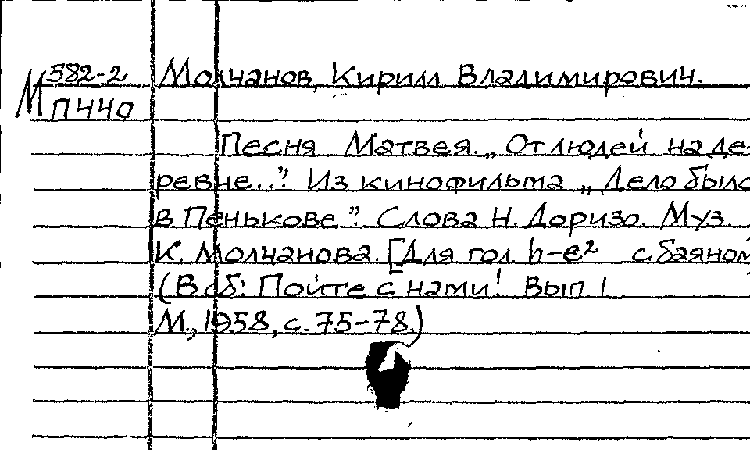 М 582-2 Молчанов, Кирилл Владимирович.
П440
Песня Матвея. „От людей на де-
ревне...". Из кинофильма „Дело было
в Пенькове". Слова Н. Доризо. Муз.
К. Молчанова. [Для гол. h-e² с баяном]
(В сб: Пойте с нами! Вып. 1
М., 1958, с. 75-78.)